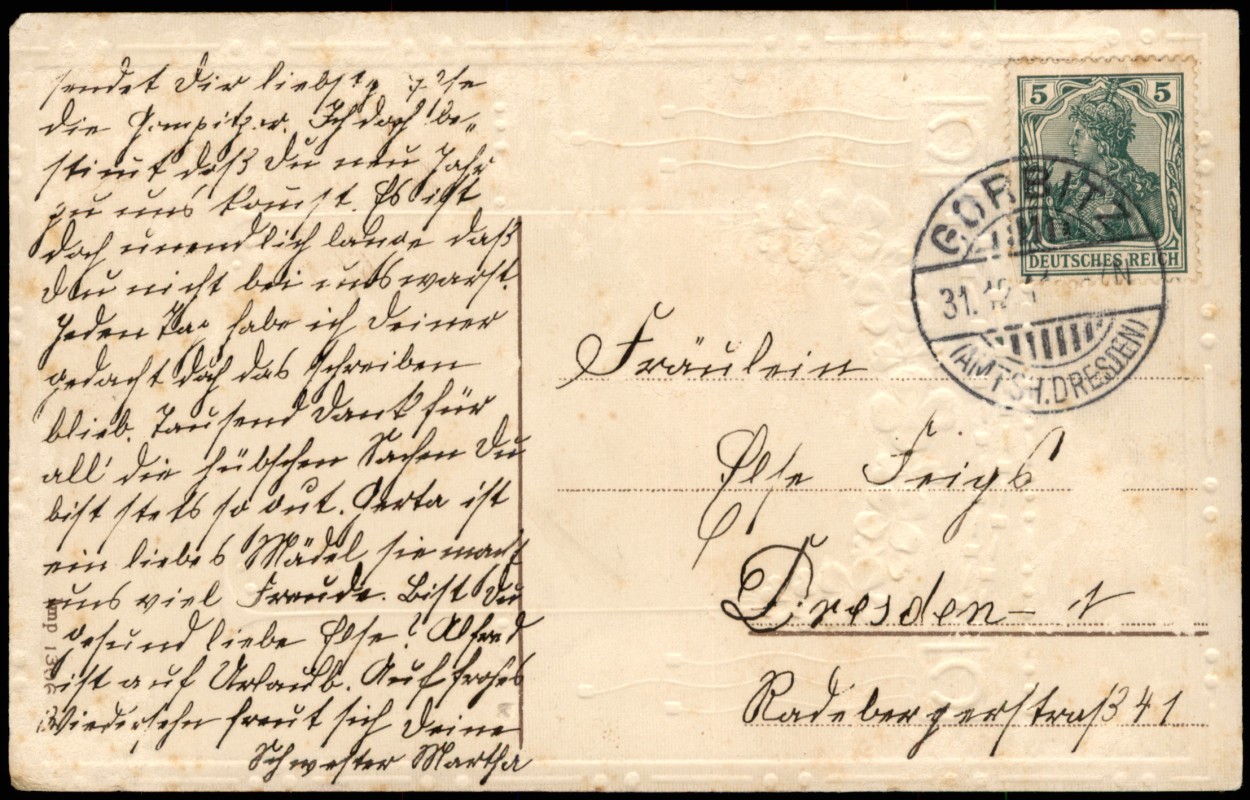 sendet Dir liebste
die Gompitzer. Ich doch be-
stimt daß Du neu Jahr
zu uns komst. Es ist
doch unendlich lange daß
Du nicht bei uns warst.
Jeden Tag habe ich Deiner
gedacht doch das schreiben
blieb. Tausend Dank für
all' die hübschen Sachen Du
bist stets so gut. Gerta ist
ein liebes Mädel sie macht
uns viel Freude. Bist Du
gesund liebe Else? Alfred
ist auf Urlaub. Auf frohes
Wiedersehn freut sich Deine
Schwester Martha
5 5
DEUTSCHES REICH
GORBITZ
31.12.
(AMTSH. DRESDEN)
Fräulein
Else Feigs
Dresden - N
Radebergerstraß 41